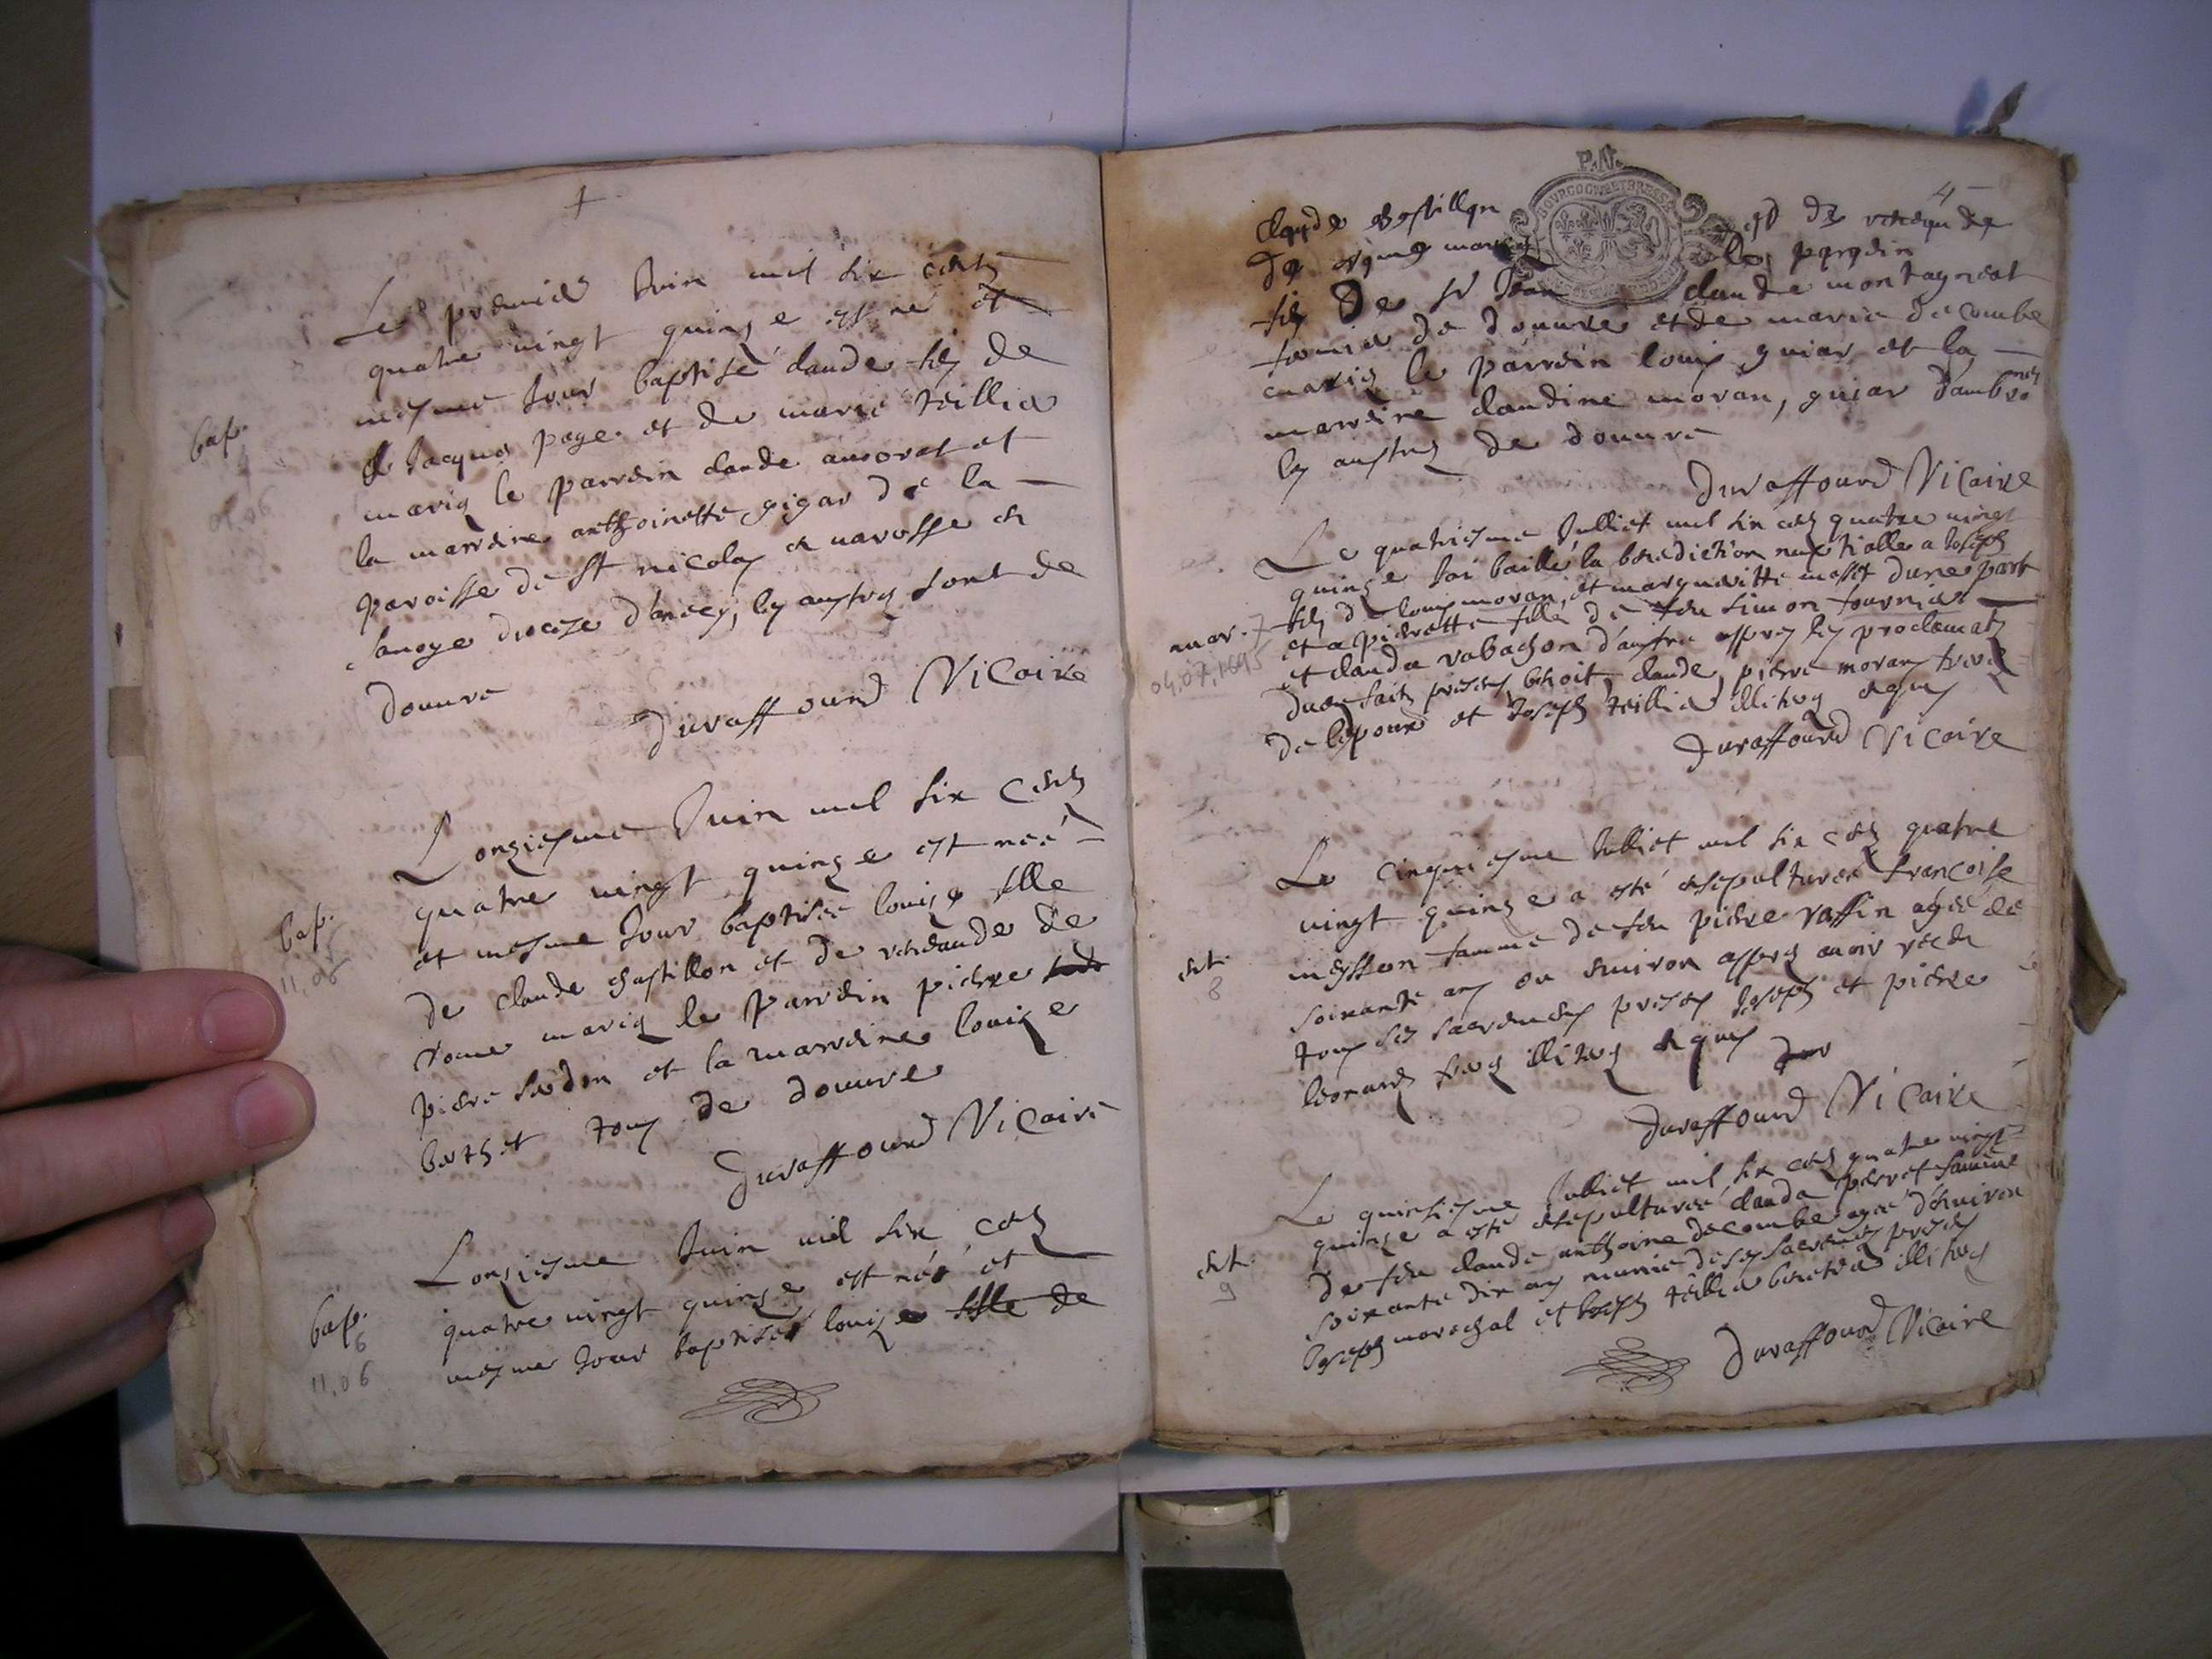 Le premier Juin mil six cents
quatre vingt quinze est né et
mesme Jour baptisé claude fils de
Jacques page et de marie teillier
mariés le parrein claude amoret et
la marreine anthoinette gigar de la
paroisse de St nicolas
dioceze d'anecy, les autres sont de
douvre
Duraffourd Vicaire
bap.
01,06
Lonziesme Juin mil six cents
quatre vingt quinze est neé
et mesme Jour baptiseé louise fille
de claude chastillon et de
mariés le parrein pierre
pierre et la marreine louise
berthet tous de douvre
Duraffourd Vicaire
bap.
11,06
Lonziesme Juin mil six cens
quatre vingt quinze est né et
mesme Jour baptisé louis fille de
bap.
6
11,06
P.N.
BOURGOGNE ET BRESSE
4
claude chastillon
le parrein
fils De Sr Jean claude montagneat
fermier de douvre et de marie decombe
mariés le parrein louis guiar et la
marreine claudine moran, guiar dambro
les autres de douvre
Duraffourd Vicaire
Le quatriesme Julliet mil six cens quatre vingt
quinze Jai baillé la benediction nuptialle a Joseph
fils de louis moran, et margueritte dune part
et a pierrette fille de feu simon fournier
et clauda rabachon d'autre apres les proclamats
duem faits presens benoit, claude, pierre moran freres
de lepoux et Joseph teillier illiteres enquis
Duraffourd Vicaire
mar. 7
04,07,1695
Le cinquiesme Julliet mil six cens quatre
vingt quinze a esté ensepultureé francoise
femme de feu pierre raffin ageé de
soixante ans ou environ apres avoir receu
tous ses sacremens presens Joseph et pierre
leonard freres illiteres enquis
Duraffourd Vicaire
ent.
8
Le quinsiesme Julliet mil six cens quatre vingt
quinze a esté ensepultureé clauda perret famme
de feu claude anthoine decombe ageé d'environ
soixante dix ans munie de ses sacremens presens
Joseph mareschal et Joseph teillier illiteres
Duraffourd Vicaire
ent.
9